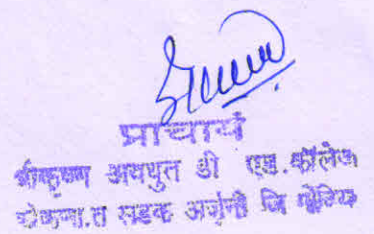 प्राचार्य
श्रीकृष्ण अवधुत डी एड. कॉलेज
सडक अर्जुनी जि गोंदिया